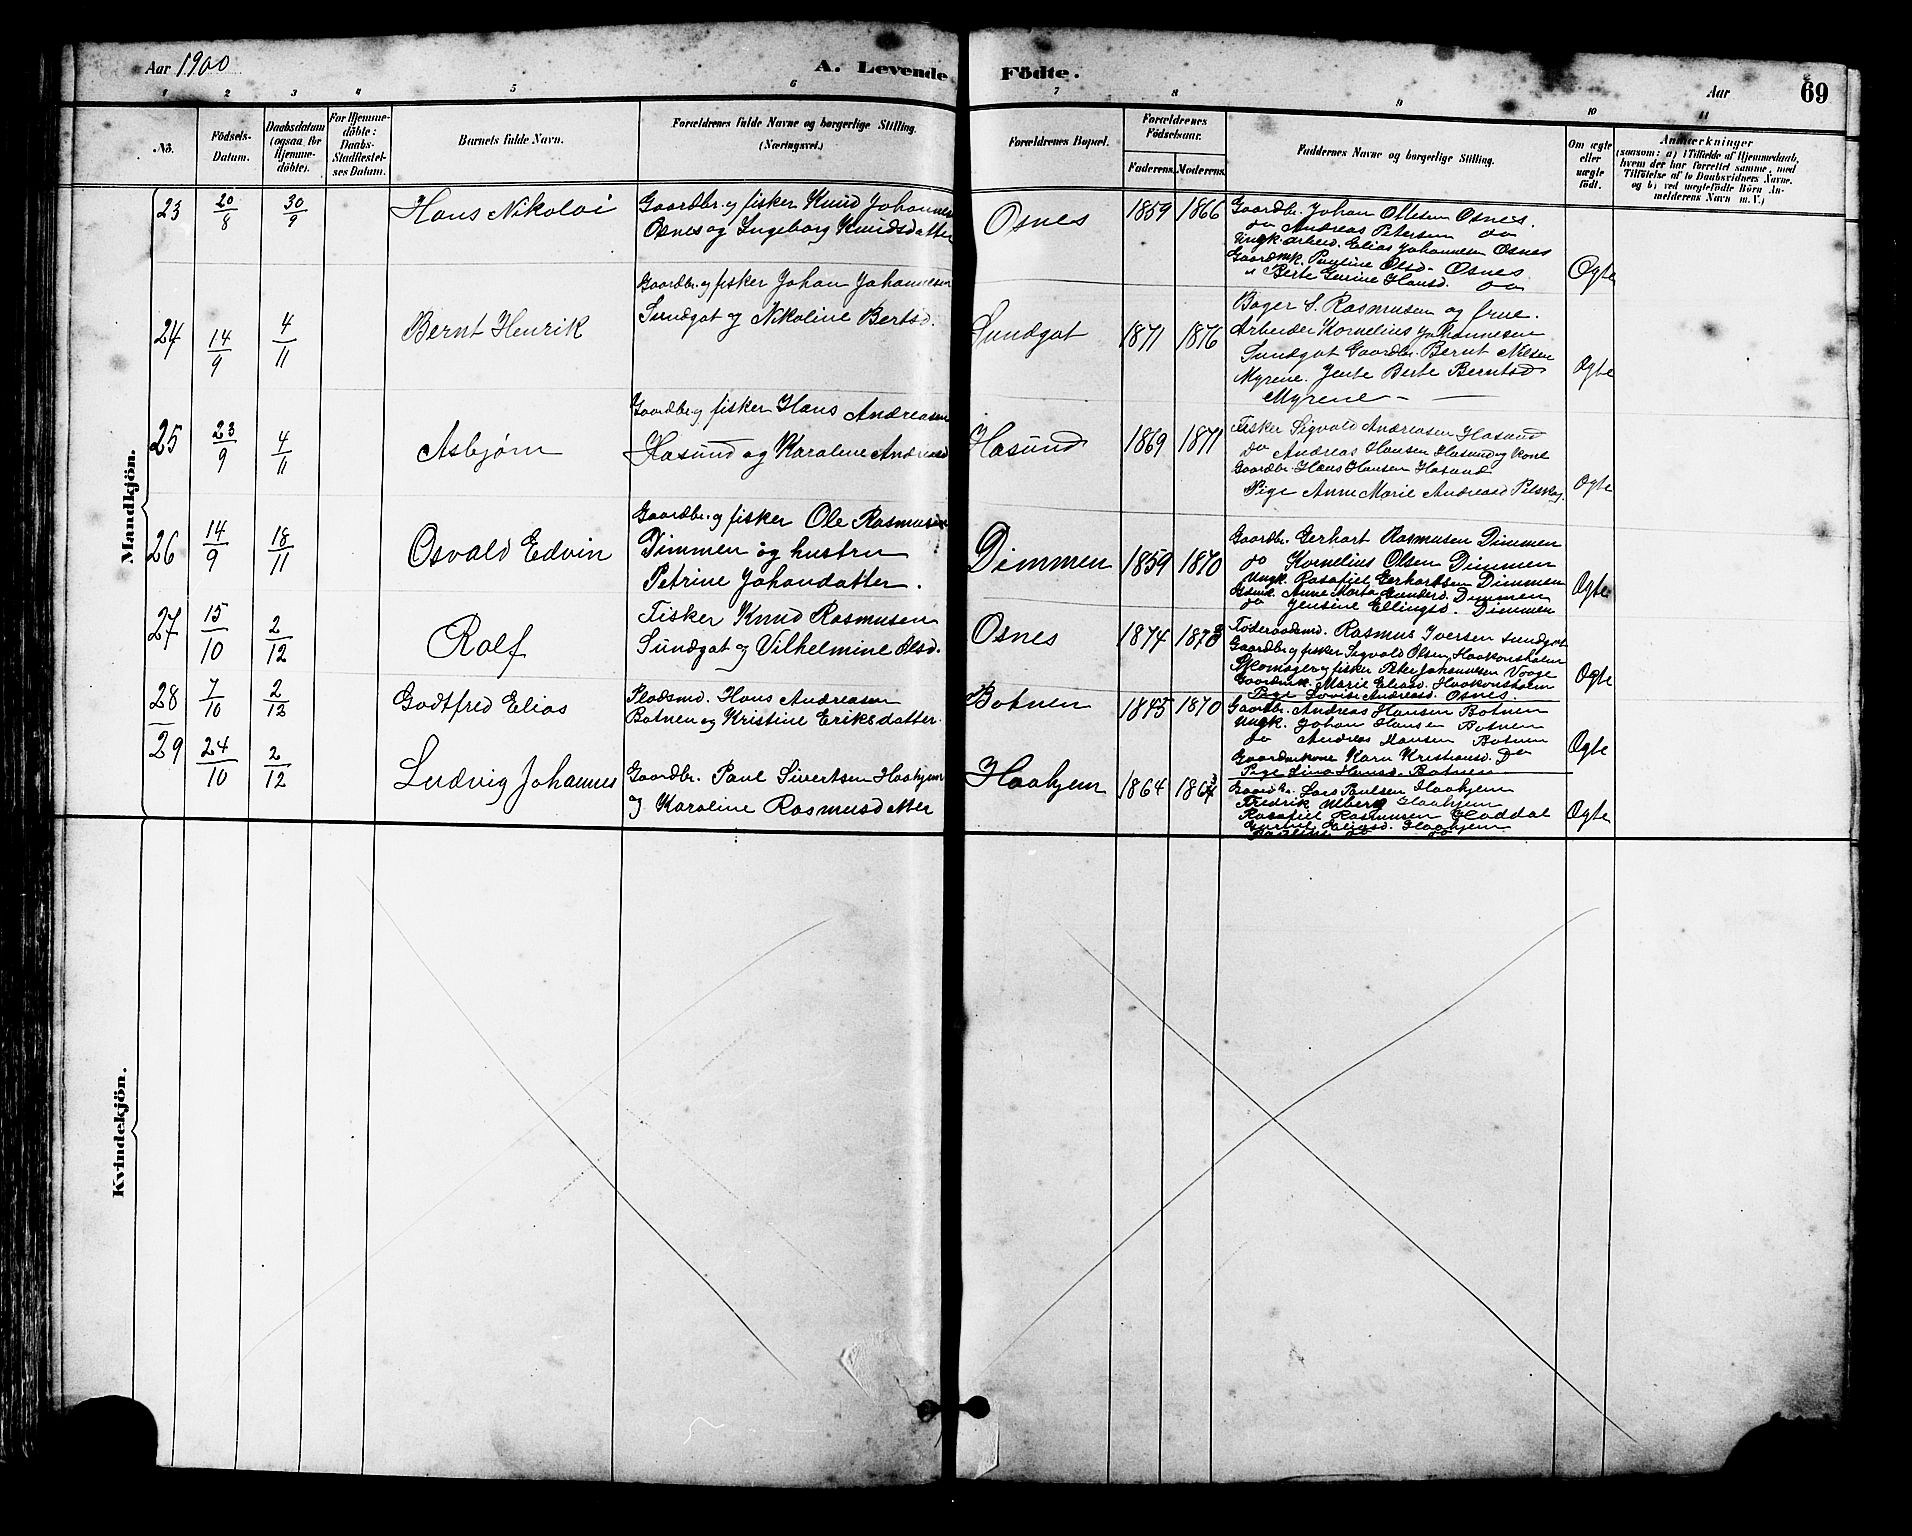 Aar 1900
A. Levende Födte.
Aar
69
1 2 3 4 5 6 7 8 9 10 11
No.
Födsels-Datum.
Daabsdatum (ogsaa for Hjemme-döbte).
For Hjemme-döbte: Daabs-Stadfæstel-ses Datum.
Barnets fulde Navn.
Forældrenes fulde Navne og borgerlige Stilling. (Næringsvei.)
Forældrenes Bopæl.
Forældrenes Födselsaar.
Faderens. Moderens.
Faddernes Navne og borgerlige Stilling.
Om ægte eller uægte födt.
Anmærkninger
(saasom: a) i Tilfælde af Hjemmedaab,
hvem der har forrettet samme, med
Tilföielse af to Daabsvidners Navne.
og b) ved uægtefödte Börn An-
melderens Navn m. V.)
Mandkjön.
23 20/8 30/9 Hans Nikolai
Gaardbr. og fisker Knud Johannes
Osnes og Ingeborg Knudsdatter
Osnes 1859 1866
Gaardbr. Johan Ottesen Osnes.
do Andreas Petersen do
Ungk. arbeid. Elias Johannesen Osnes
Gaardmk. Pauline Olsd. Osnes
" Berte Hansd. do
Ogte
24 14/9 4/11 Bernt Henrik
Gaardbr. og fisker Johan Johannesen
Sundgot og Nikoline Bertsd.
Sundgot 1871 1876
Bager S. Rasmusen og frue.
Arbeider Kornelius Johannesen
Sundgot Gaardbr. Bernt Nilsen
Myrene. Jente Berte Berntsd
Myrene
Ogte
25 23/9 4/11 Asbjørn
Gaardbr. og fisker Hans Andreasen
Hasund og Karoline Andreasd
Hasund 1869 1871
Fisker Sigvald Andreasen Hasund
do Andreas Hansen Hasund og kone
Gaardbr. Hans Hansen Hasund
Pige Anne Marie Andreasd
Ogte
26 14/9 18/11 Osvald Edvin
Gaardbr. og fisker Ole Rasmusen
Dimmen og hustru
Petrine Johandatter.
Dimmen 1859 1870
Gaardbr. Gerhart Rasmusen Dimmen
do Kornelius Olsen Dimmen
Ungk. Rasafiel Gerhartsen Dimmen
Gdmk. Anne Marta Gunders. Dimmen
do Jensine Ellingsd. Dimmen
Ogte
27 15/10 2/12 Rolf
Fisker Knud Rasmusen
Sundgot og Vilhelmine Olsd.
Osnes 1874
Føderaadsmd. Rasmus Iversen Sundgot
Gaardbr. og fisker Sigvald Olsen Haakonsholm
Skomager og fisker Peter Johannesen Voge
Gaardmk. Marie Eliasd. Haakonsholm
Pige Lovise Andreasd. Osnes.
Ogte
28 7/10 2/12 Godtfred Elias
Pladsmd. Hans Andreasen
Botnen og Kristine Eriksdatter.
Botnen 1870
Gaardbr. Andreas Hansen Botnen
Ungk. Johan Hansen Botnen
do Andreas Hansen Botnen
Gaardmkone Karn Kristiansd. Do
Pige Lina Hansd. Botnen
Ogte
29 24/10 2/12 Ludvig Johannes
Gaardbr. Paul Sivertsen Haahjem
og Karoline Rasmusdatter
Haahjem 1864
Gaardbr. Lars Paulsen Haahjem
Fredrik Ulberg Haahjem
Rasafiel Rasmusen Haddal
Eliasd. Haahjem
Ogte
Kvindekjön.